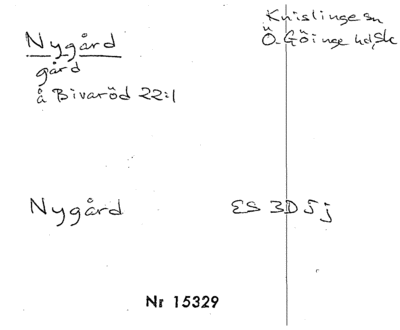 Nygård
gård
å Bivaröd 22:1
Knislinge sn
Ö. Göinge hd, Sk
Nygård
ES 3D 5 j
Nr 15329